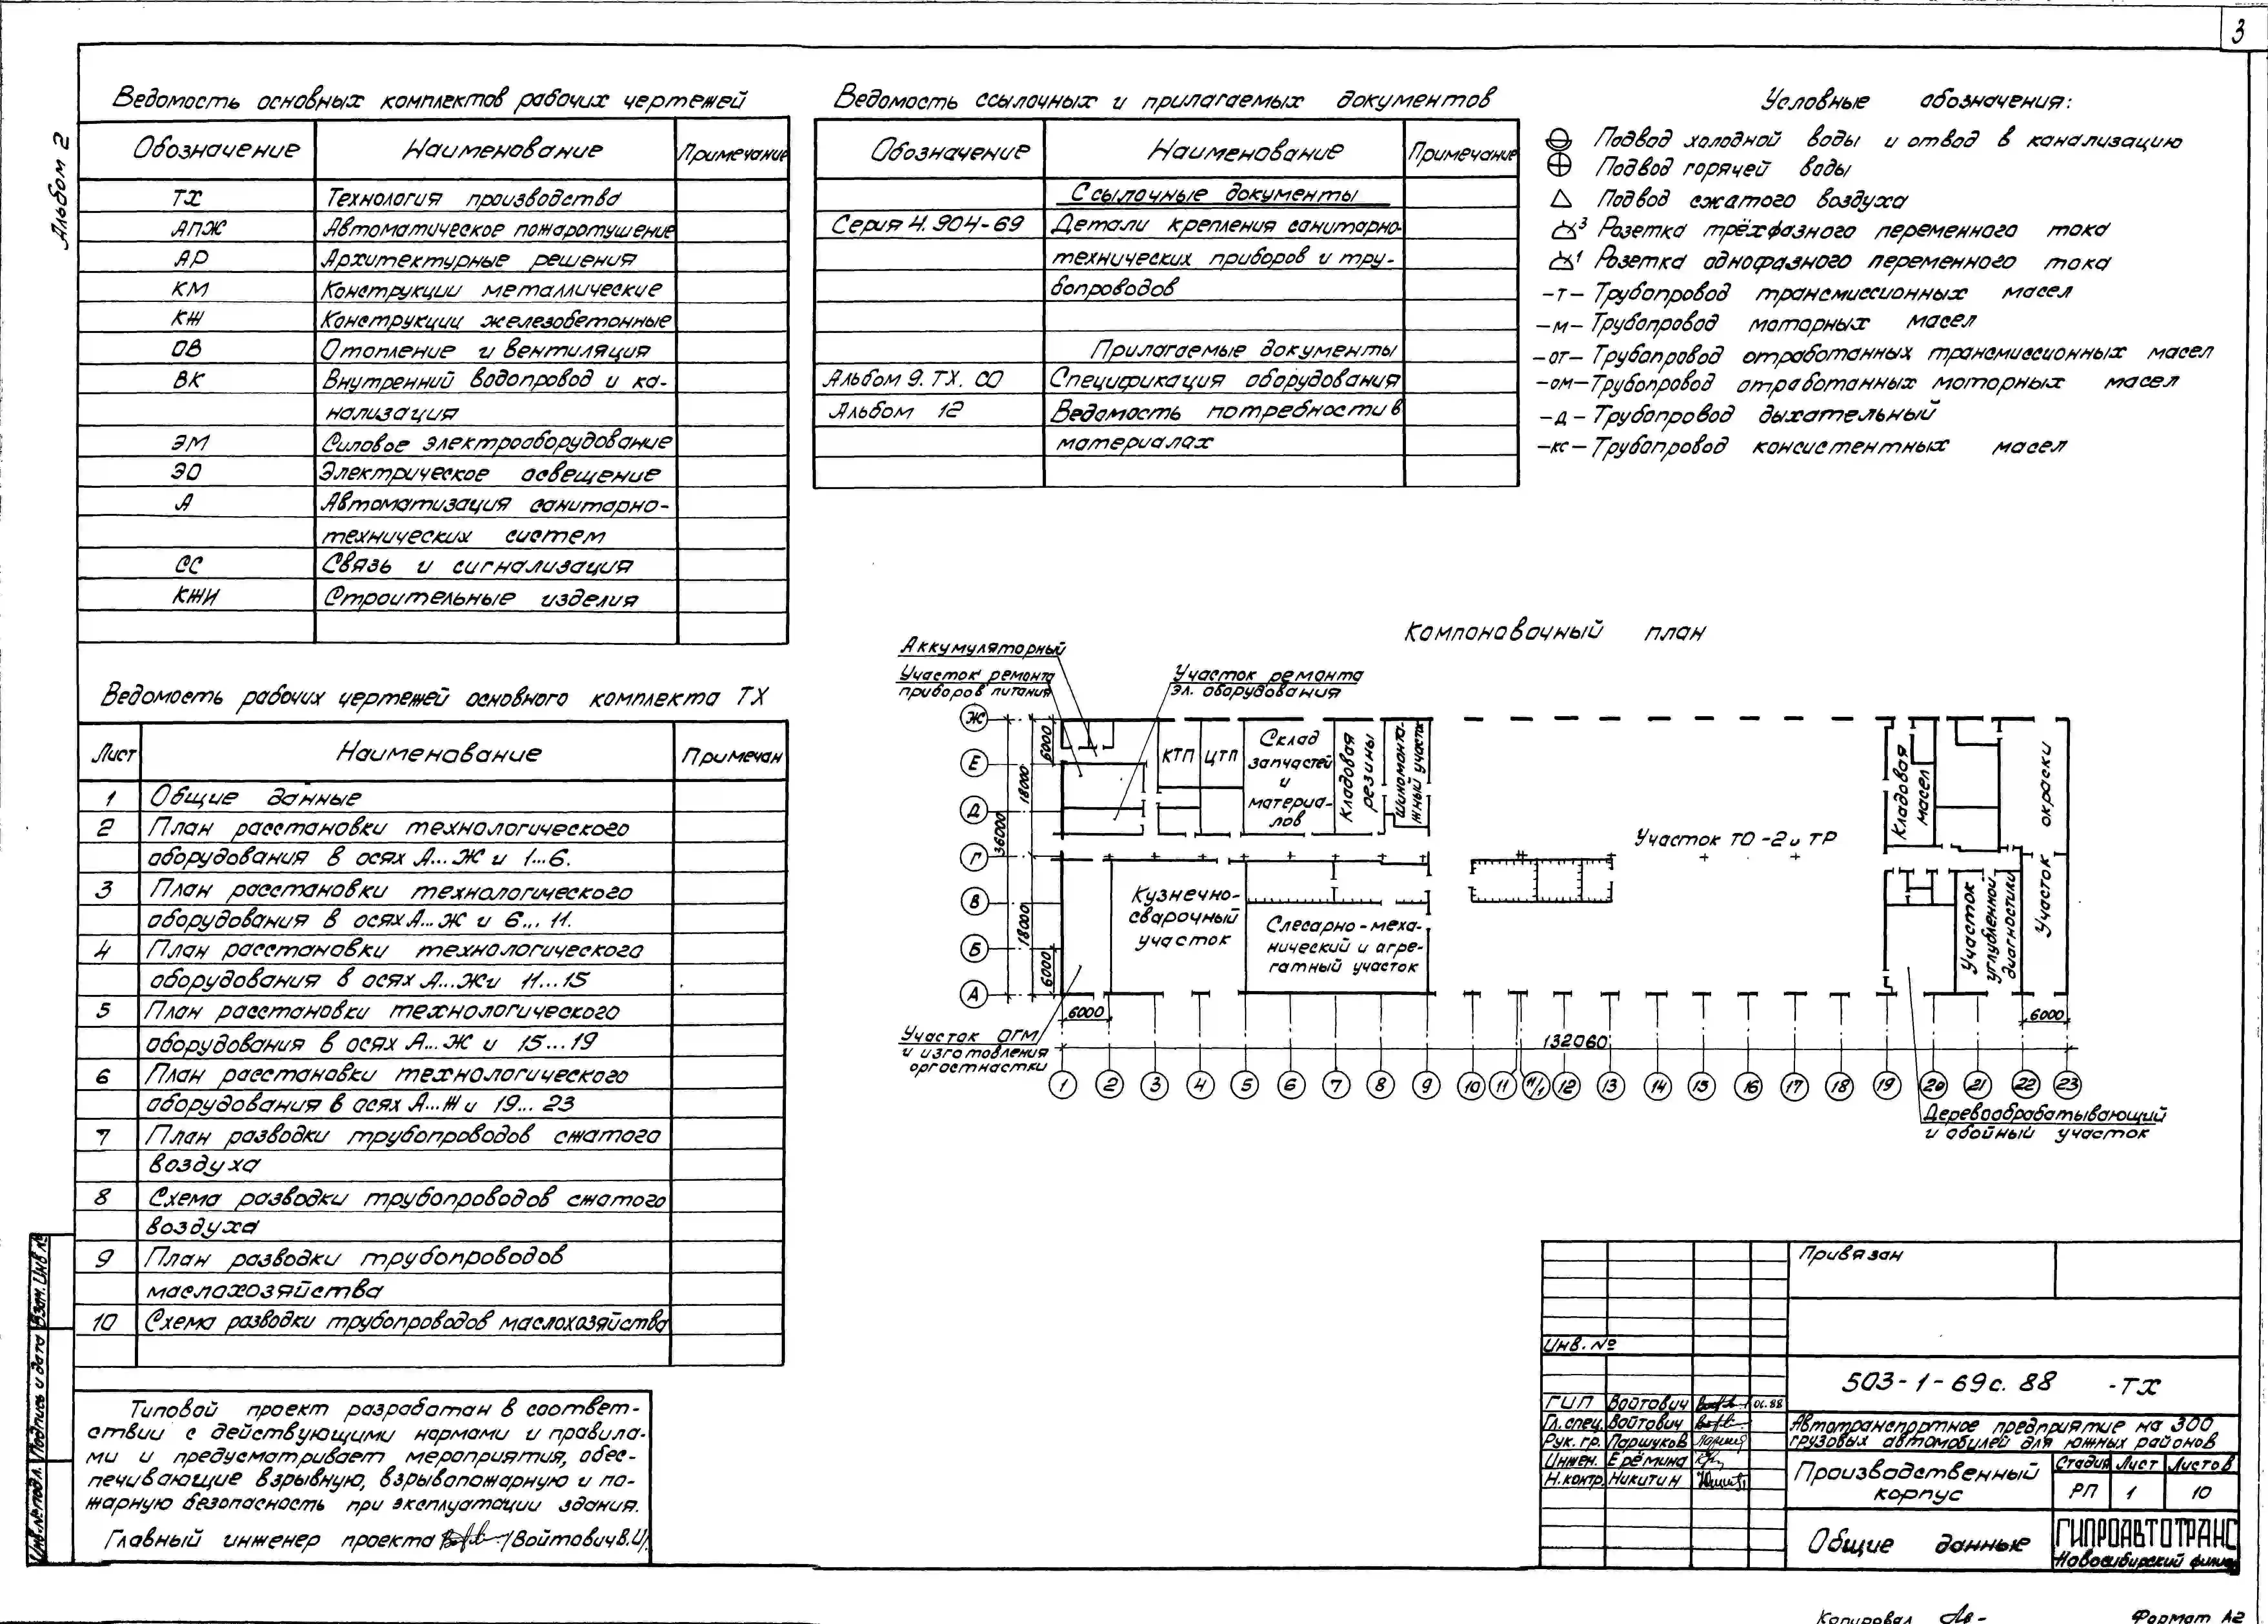 3
Альбом 2
Ведомость основных комплектов рабочих чертежей
Обозначение Наименование Примечание
ТХ Технология производства
АПЖ Автоматическое пожаротушение
АР Архитектурные решения
КМ Конструкции металлические
КЖ Конструкции железобетонные
ОВ Отопление и вентиляция
ВК Внутренний водопровод и ка-
нализация
ЭМ Силовое электрооборудование
ЭО Электрическое освещение
А Автоматизация санитарно-
технических систем
СС Связь и сигнализация
КЖИ Строительные изделия
Ведомость рабочих чертежей основного комплекта ТХ
Лист Наименование Примечан
1 Общие данные
2 План расстановки технологического
оборудования в осях А...Ж и 1...6.
3 План расстановки технологического
оборудования в осях А...Ж и 6...11.
4 План расстановки технологического
оборудования в осях А...Ж и 11...15
5 План расстановки технологического
оборудования в осях А...Ж и 15...19
6 План расстановки технологического
оборудования в осях А...Ж и 19...23
7 План разводки трубопроводов сжатого
воздуха
8 Схема разводки трубопроводов сжатого
воздуха
9 План разводки трубопроводов
маслохозяйства
10 Схема разводки трубопроводов маслохозяйства
Типовой проект разработан в соответ-
ствии с действующими нормами и правила-
ми и предусматривает мероприятия, обес-
печивающие взрывную, взрывопожарную и по-
жарную безопасность при эксплуатации здания.
Главный инженер проекта /Войтович В.И/.
Инв.№ подл. Подпись и дата Взам. Инв №
Ведомость ссылочных и прилагаемых документов
Обозначение Наименование Примечание
Ссылочные документы
Серия 4.904-69 Детали крепления санитарно-
технических приборов и тру-
бопроводов
Прилагаемые документы
Альбом 9. ТХ. СО Спецификация оборудования
Альбом 12 Ведомость потребности в
материалах
Условные обозначения:
Подвод холодной воды и отвод в канализацию
Подвод горячей воды
Подвод сжатого воздуха
3 Розетка трёхфазного переменного тока
1 Розетка однофазного переменного тока
-т- Трубопровод трансмиссионных масел
-м- Трубопровод моторных масел
-от- Трубопровод отработанных трансмиссионных масел
-ом- Трубопровод отработанных моторных масел
-д- Трубопровод дыхательный
-кс- Трубопровод консистентных масел
Компоновочный план
Аккумуляторный
Участок ремонта
приборов питания
Участок ремонта
эл. оборудования
Ж
Е
Д
Г
В
Б
А
6000
18000
36000
18000
6000
КТП
ЦТП
Склад
запчастей
и
материа-
лов
Кладовая
резины
Шиномонта-
жный участок
Участок ТО-2 и ТР
Кладовая
масел
Участок окраски
Кузнечно-
сварочный
участок
Слесарно-меха-
нический и агре-
гатный участок
Участок
углубленной
диагностики
6000
132060
6000
Участок ОГМ
и изготовления
оргостнастки
1 2 3 4 5 6 7 8 9 10 11 11/1 12 13 14 15 16 17 18 19 20 21 22 23
Деревообрабатывающий
и обойный участок
Привязан
Инв. №
503-1-69с.88 -ТХ
ГИП Войтович 06.88
Гл.спец. Войтович
Рук. гр. Паршуков
Инжен. Ерёмина
Н.контр. Никитин
Автотранспортное предприятие на 300
грузовых автомобилей для южных районов
Производственный
корпус
Стадия Лист Листов
РП 1 10
Общие данные
ГИПРОАВТОТРАНС
Новосибирский филиал
Копировал
Формат А2